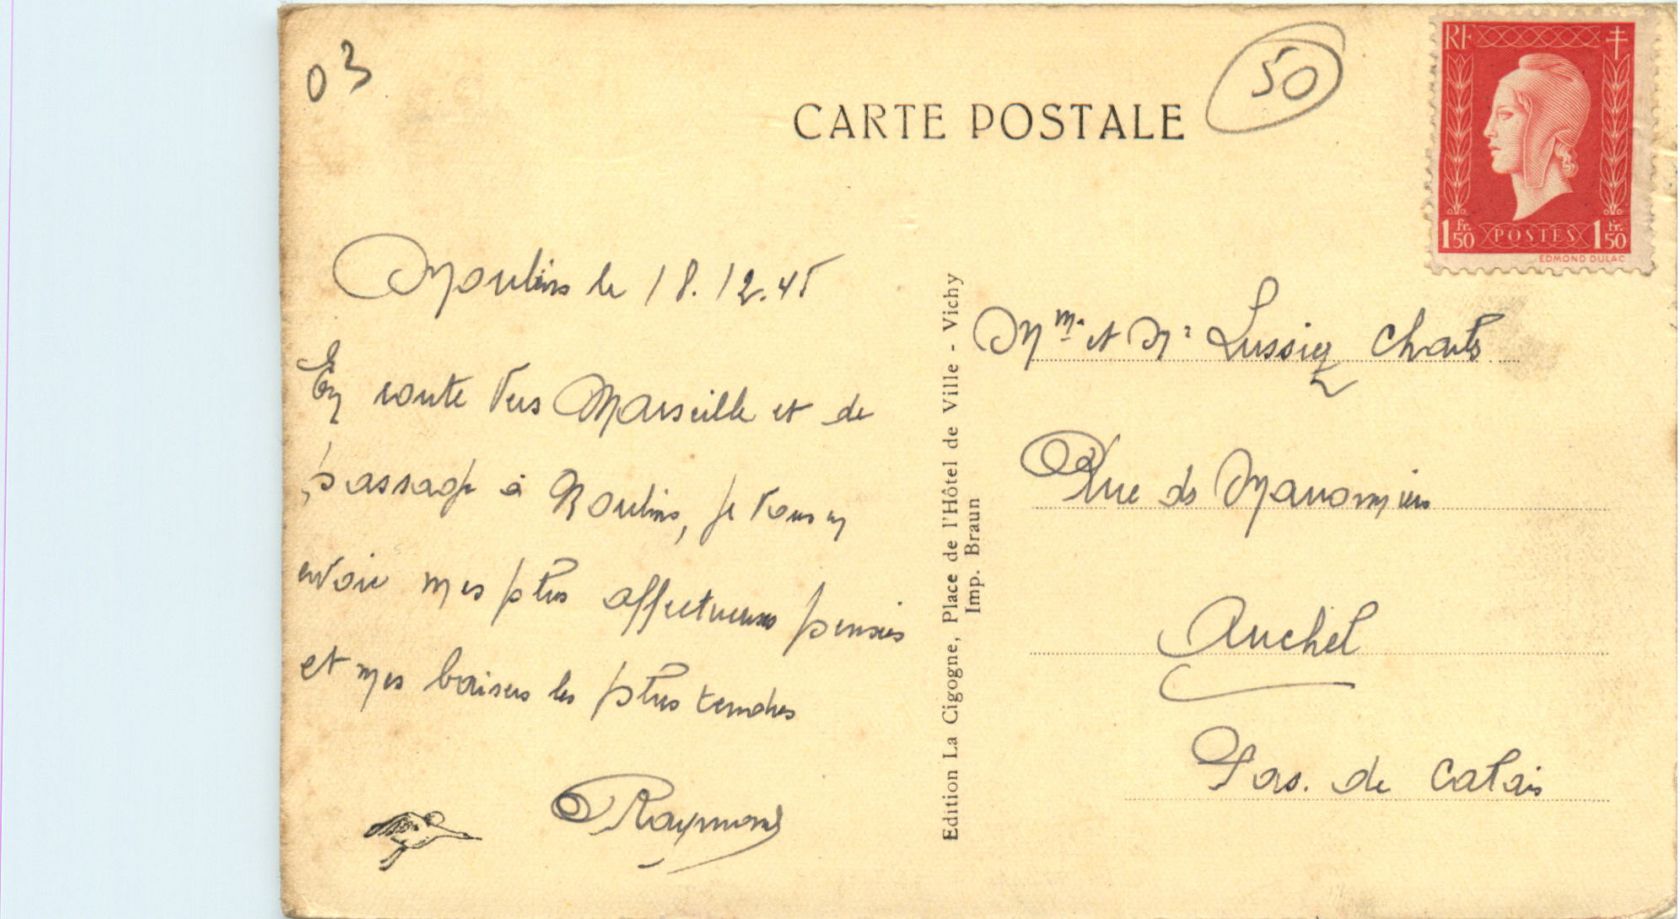 03
50
CARTE POSTALE
RF
1 Fr. 50 POSTES 1 Fr. 50
EDMOND DULAC
Moulins le 18.12.45
En route vers Marseille et de
passage à Moulins, je vous en
envoie mes plus affectueuses pensées
et mes baisers les plus tendres
Raymond
Edition La Cigogne, Place de l'Hôtel de Ville - Vichy
Imp. Braun
Mme et Mr Lussiez Charles
Rue de
Auchel
Pas. de Calais